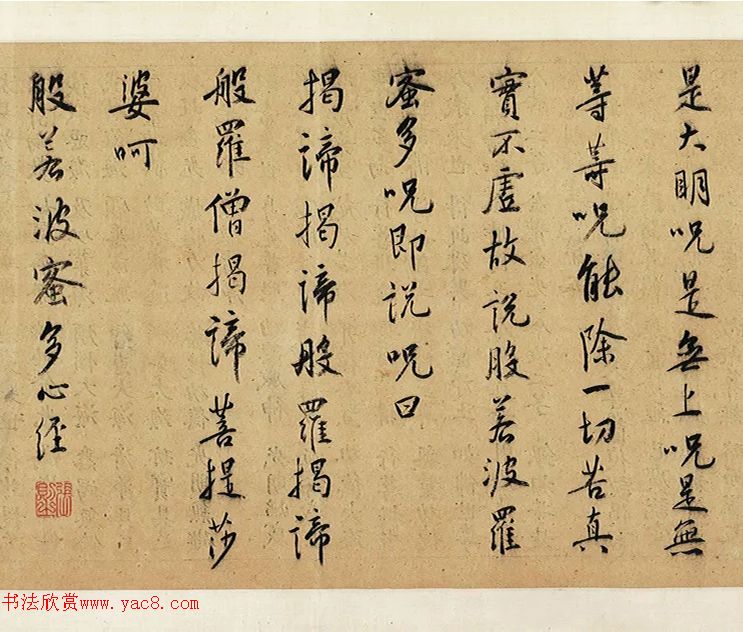 是大明呪是無上呪是無
等等呪能除一切苦真
實不虛故説般若波羅
蜜多呪即説呪曰
揭諦揭諦般羅揭諦
般羅僧揭諦菩提莎
婆呵
般若波蜜多心經
书法欣赏www.yac8.com